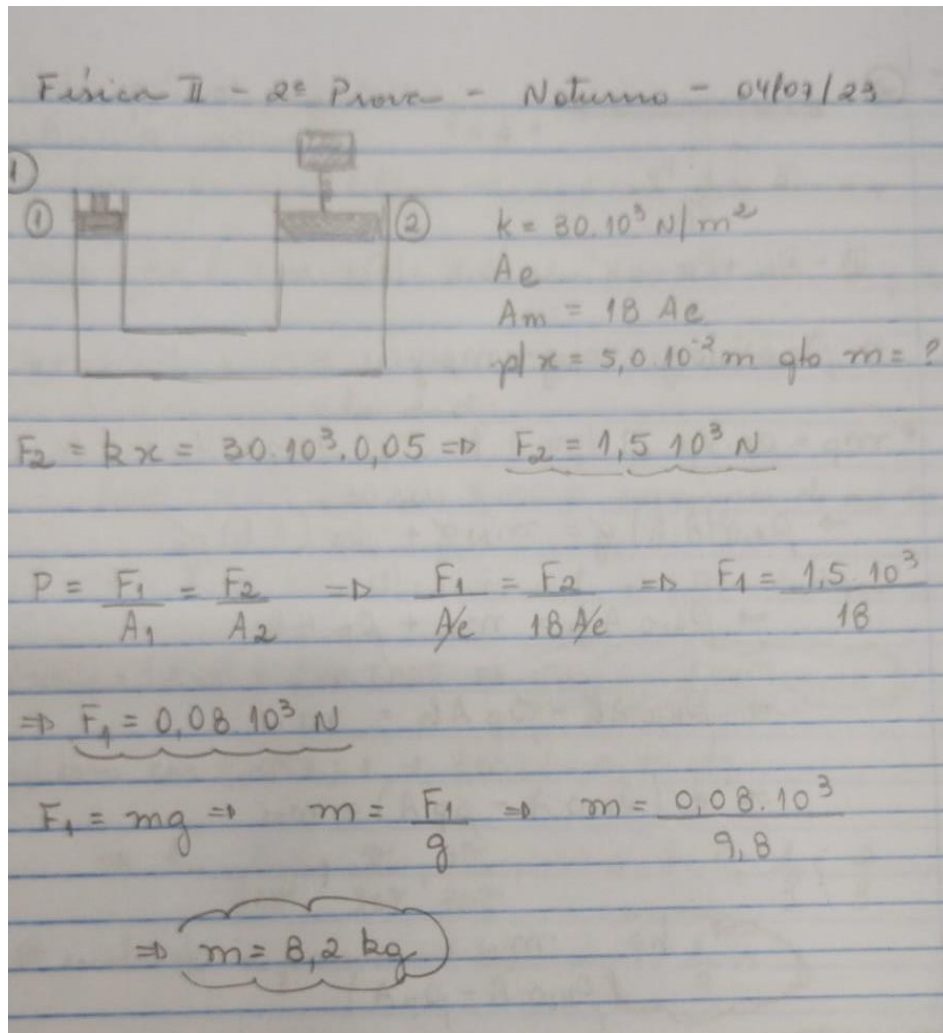 Física II - 2ª Prova - Noturno - 04/07/23
1)
① ② k = 30.10³ N/m²
Ae
Am = 18 Ae
p/ x = 5,0 10⁻² m qto m = ?
F₂ = kx = 30.10³.0,05 => F₂ = 1,5 10³ N
P = F₁/A₁ = F₂/A₂ => F₁/Ae = F₂/18 Ae => F₁ = 1,5 10³/18
=> F₁ = 0,08 10³ N
F₁ = mg => m = F₁/g => m = 0,08.10³/9,8
=> m = 8,2 kg